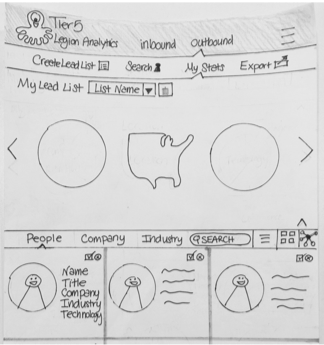 Tier5
Legion Analytics inbound Outbound
Create Lead List Search My Stats Export
My Lead List List Name
People Company Industry SEARCH
Name
Title
Company
Industry
Technology